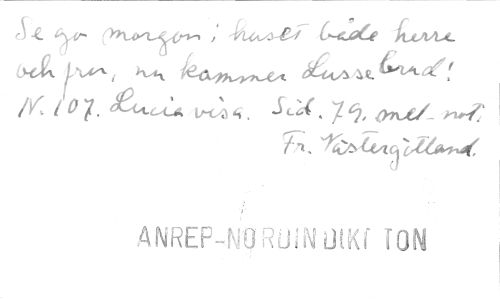 Se go morgon i huset både herre
och fru, nu kommer Lussebrud!
N. 107. Lucia visa. Sid. 79. mel-not.
Fr. Västergötland.
ANREP-NORDIN DIKT TON